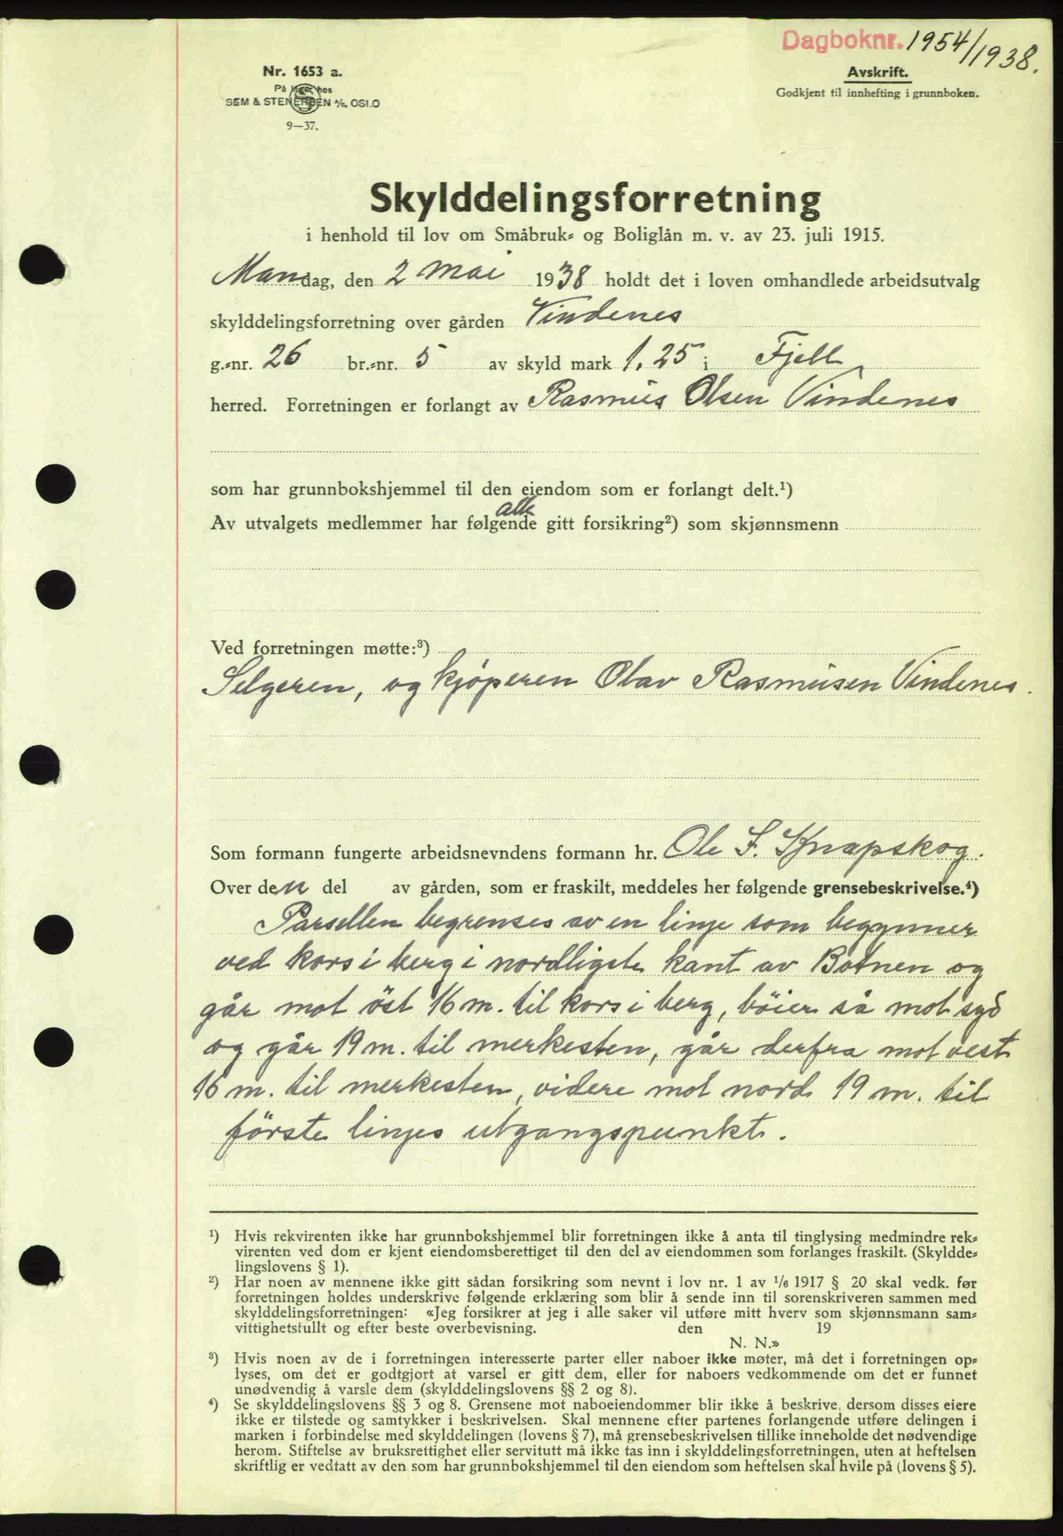 Dagboknr. 1954/1938.
Nr. 1653 a.
På lager hos
SEM & STENERSEN A/S, OSLO
9—37.
Avskrift.
Godkjent til innhefting i grunnboken.
Skylddelingsforretning
i henhold til lov om Småbruk- og Boliglån m. v. av 23. juli 1915.
Mandag, den 2 mai 1938 holdt det i loven omhandlede arbeidsutvalg
skylddelingsforretning over gården Vindenes
g.-nr. 26 br.-nr. 5 av skyld mark 1,25 i Fjell
herred. Forretningen er forlangt av Rasmus Olsen Vindenes
som har grunnbokshjemmel til den eiendom som er forlangt delt.¹)
alle
Av utvalgets medlemmer har følgende gitt forsikring²) som skjønnsmenn
Ved forretningen møtte:³)
Selgeren, og kjøperen Olav Rasmusen Vindenes.
Som formann fungerte arbeidsnevndens formann hr. Ole S. Knapskog.
Over den del av gården, som er fraskilt, meddeles her følgende grensebeskrivelse.⁴)
Parsellen begrenses av en linje som begynner
ved kors i berg i nordligste kant av Botnen og
går mot öst 16 m. til kors i berg, böier så mot syd
og går 19 m. til merkesten, går derfra mot vest
16 m. til merkesten, videre mot nord 19 m. til
förste linjes utgangspunkt.
¹) Hvis rekvirenten ikke har grunnbokshjemmel blir forretningen ikke å anta til tinglysing medmindre rek-
virenten ved dom er kjent eiendomsberettiget til den del av eiendommen som forlanges fraskilt. (Skyldde-
lingslovens § 1).
²) Har noen av mennene ikke gitt sådan forsikring som nevnt i lov nr. 1 av 1/8 1917 § 20 skal vedk. før
forretningen holdes underskrive følgende erklæring som blir å sende inn til sorenskriveren sammen med
skylddelingsforretningen: «Jeg forsikrer at jeg i alle saker vil utføre mitt hverv som skjønnsmann sam-
vittighetsfullt og efter beste overbevisning. den 19
N. N.»
³) Hvis noen av de i forretningen interesserte parter eller naboer ikke møter, må det i forretningen op-
lyses, om det er godtgjort at varsel er gitt dem, eller for naboers vedkommende om det er funnet
unødvendig å varsle dem (skylddelingslovens §§ 2 og 8).
⁴) Se skylddelingslovens §§ 3 og 8. Grensene mot naboeiendommer blir ikke å beskrive, dersom disses eiere
ikke er tilstede og samtykker i beskrivelsen. Skal mennene efter partenes forlangende utføre delingen i
marken i forbindelse med skylddelingen (lovens § 7), må grensebeskrivelsen tillike inneholde det nødvendige
herom. Stiftelse av bruksrettighet eller servitutt må ikke tas inn i skylddelingsforretningen, uten at heftelsen
skriftlig er vedtatt av den som har grunnbokshjemmel til den eiendom som heftelsen skal hvile på (lovens § 5).